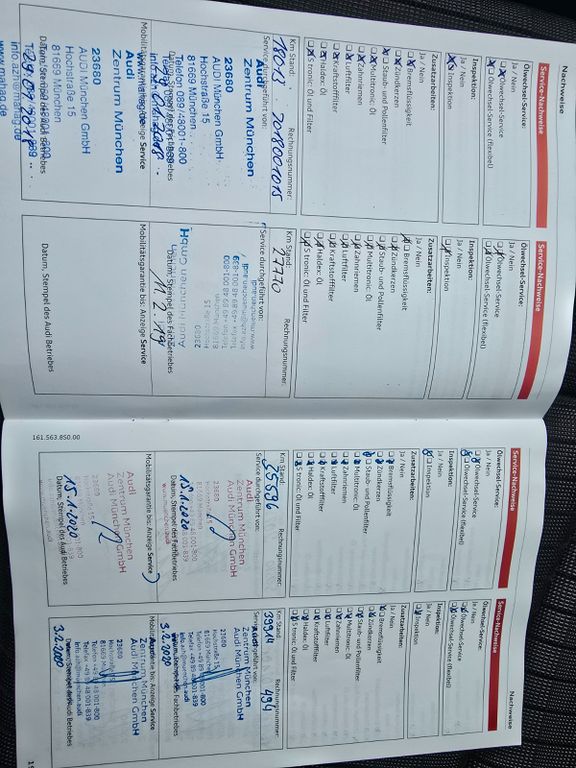 Nachweise
Service-Nachweise
Ölwechsel-Service:
Ja / Nein
Ölwechsel-Service
Ölwechsel-Service (flexibel)
Inspektion:
Ja / Nein
Inspektion
Zusatzarbeiten:
Ja / Nein
Bremsflüssigkeit
Zündkerzen
Staub- und Pollenfilter
Multitronic: Öl
Zahnriemen
Luftfilter
Kraftstofffilter
Haldex: Öl
S tronic: Öl und Filter
Km Stand:
Rechnungsnummer:
18011
2018001015
Service durchgeführt von:
Audi
Zentrum München
23680
AUDI München GmbH
Hochstraße 15
81669 München
Telefon 089/48001-800
Mobilitätsgarantie bis: Anzeige Service
Audi
Zentrum München
23680
AUDI München GmbH
Hochstraße 15
81669 München
info.azm@mahag.de
www.mahag.de
Service-Nachweise
Ölwechsel-Service:
Ja / Nein
Ölwechsel-Service
Ölwechsel-Service (flexibel)
Inspektion:
Ja / Nein
Inspektion
Zusatzarbeiten:
Ja / Nein
Bremsflüssigkeit
Zündkerzen
Staub- und Pollenfilter
Multitronic: Öl
Zahnriemen
Luftfilter
Kraftstofffilter
Haldex: Öl
S tronic: Öl und Filter
Km Stand:
Rechnungsnummer:
27770
Service durchgeführt von:
Datum, Stempel des Fachbetriebes
Mobilitätsgarantie bis: Anzeige Service
Datum, Stempel des Audi Betriebes
161.563.850.00
Service-Nachweise
Ölwechsel-Service:
Ja / Nein
Ölwechsel-Service
Ölwechsel-Service (flexibel)
Inspektion:
Ja / Nein
Inspektion
Zusatzarbeiten:
Ja / Nein
Bremsflüssigkeit
Zündkerzen
Staub- und Pollenfilter
Multitronic: Öl
Zahnriemen
Luftfilter
Kraftstofffilter
Haldex: Öl
S tronic: Öl und Filter
Km Stand:
Rechnungsnummer:
35696
Service durchgeführt von:
Audi
Zentrum München
Audi München GmbH
15.1.2020
Datum, Stempel des Fachbetriebes
Mobilitätsgarantie bis: Anzeige Service
Audi
Zentrum München
Audi München GmbH
15.1.2020
Datum, Stempel des Audi Betriebes
Nachweise
Service-Nachweise
Ölwechsel-Service:
Ja / Nein
Ölwechsel-Service
Ölwechsel-Service (flexibel)
Inspektion:
Ja / Nein
Inspektion
Zusatzarbeiten:
Ja / Nein
Bremsflüssigkeit
Zündkerzen
Staub- und Pollenfilter
Multitronic: Öl
Zahnriemen
Luftfilter
Kraftstofffilter
Haldex: Öl
S tronic: Öl und Filter
Km Stand:
Rechnungsnummer:
39914
494
Zentrum München
Audi München GmbH
23680
Hochstraße 15
81669 München
3.12.2020
Mobilitätsgarantie bis: Anzeige Service
Audi
Zentrum München
Audi München GmbH
23680
3.12.2020